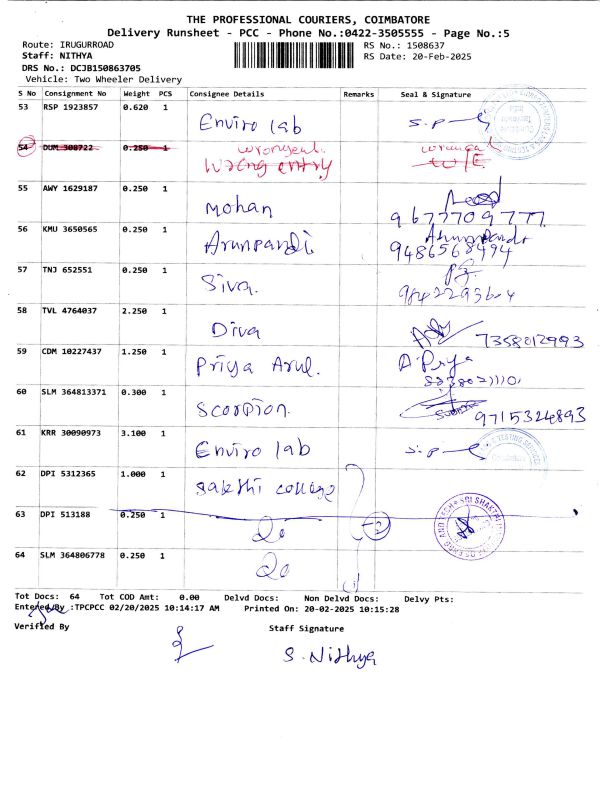 THE PROFESSIONAL COURIERS, COIMBATORE
Delivery Runsheet - PCC - Phone No.:0422-3505555 - Page No.:5
Route: IRUGURROAD
RS No.: 1508637
Staff: NITHYA
RS Date: 20-Feb-2025
DRS No.: DCJB150863705
Vehicle: Two Wheeler Delivery
S No Consignment No Weight PCS Consignee Details Remarks Seal & Signature
53 RSP 1923857 0.620 1 Enviro lab S.P
54 DUM 308722 0.250 1 wrong entry W/E
55 AWY 1629187 0.250 1 Mohan 9677709777
56 KMU 3650565 0.250 1 Arunpandi Arunpandi 9486568494
57 TNJ 652551 0.250 1 Siva.
58 TVL 4764037 2.250 1 Diva 7358012993
59 CDM 10227437 1.250 1 Priya Arul. A. Priya
60 SLM 364813371 0.300 1 Scorpion. 9715324893
61 KRR 30090973 3.100 1 Enviro lab S.P
62 DPI 5312365 1.000 1 Sakthi college
63 DPI 513188 0.250 1 Do
64 SLM 364806778 0.250 1 Do
Tot Docs: 64 Tot COD Amt: 0.00 Delvd Docs: Non Delvd Docs: Delvy Pts:
Entered By :TPCPCC 02/20/2025 10:14:17 AM Printed On: 20-02-2025 10:15:28
Verified By Staff Signature
S. Nithya